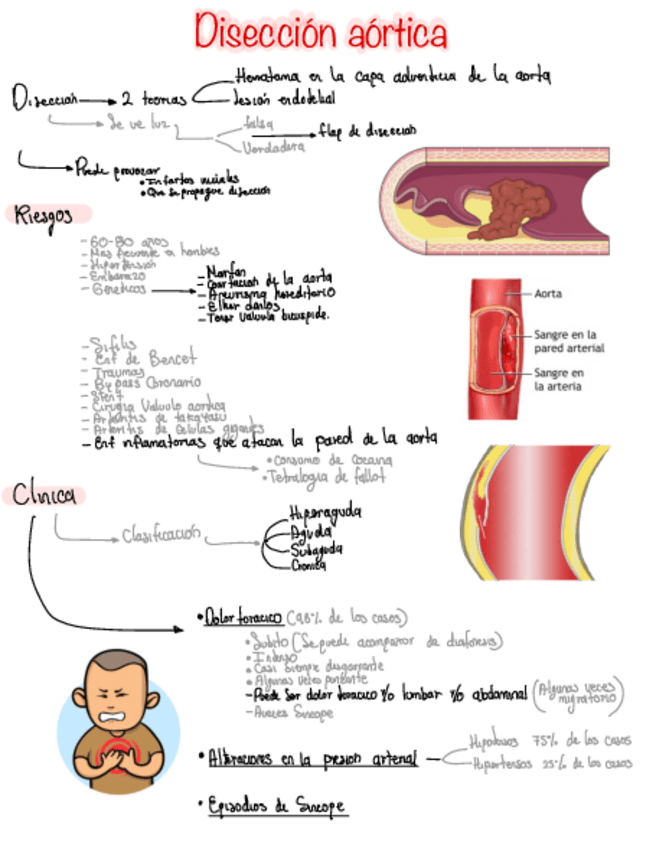 Disección aórtica
Hematoma en la capa adventicia de la aorta
Disección → 2 teorias
lesión endotelial
Se ve luz
falsa
Verdadera
flap de disección
Puede provocar
• Infartos
• Que se propague disección
Riesgos
- 60-80 años
- Mas frecuente en hombres
- Hipertensión
- Embarazo
- Geneticos
- Marfan
- Coartacion de la aorta
- Aneurisma hereditario
- Elher danlos
- Tener Valvula bicuspide.
Aorta
Sangre en la
pared arterial
Sangre en
la arteria
- Sifilis
- Enf de Bencet
- Traumas
- Bypass Coronario
- Stent
- Cirugia Valvula aortica
- Arteritis de takayasu
- Arteritis de Celulas gigantes
- Enf nflamatorias que atacan la pared de la aorta
• Consumo de Cocaina
• Tetralogia de fallot
Clínica
Clasificación
Hiperaguda
Aguda
Subaguda
Cronica
• Dolor toracico (96% de los casos)
• Subito (Se puede acompañar de diaforesis)
• Intenso
• Casi siempre desgarrante
• Algunas veces punzante
- Puede Ser dolor toracico y/o lumbar y/o abdominal (Algunas veces
migratorio)
- Aveces Sincope
• Alteraciones en la presion arterial
Hipotensos 75% de los casos
Hipertensos 25% de los casos
• Episodios de Sincope